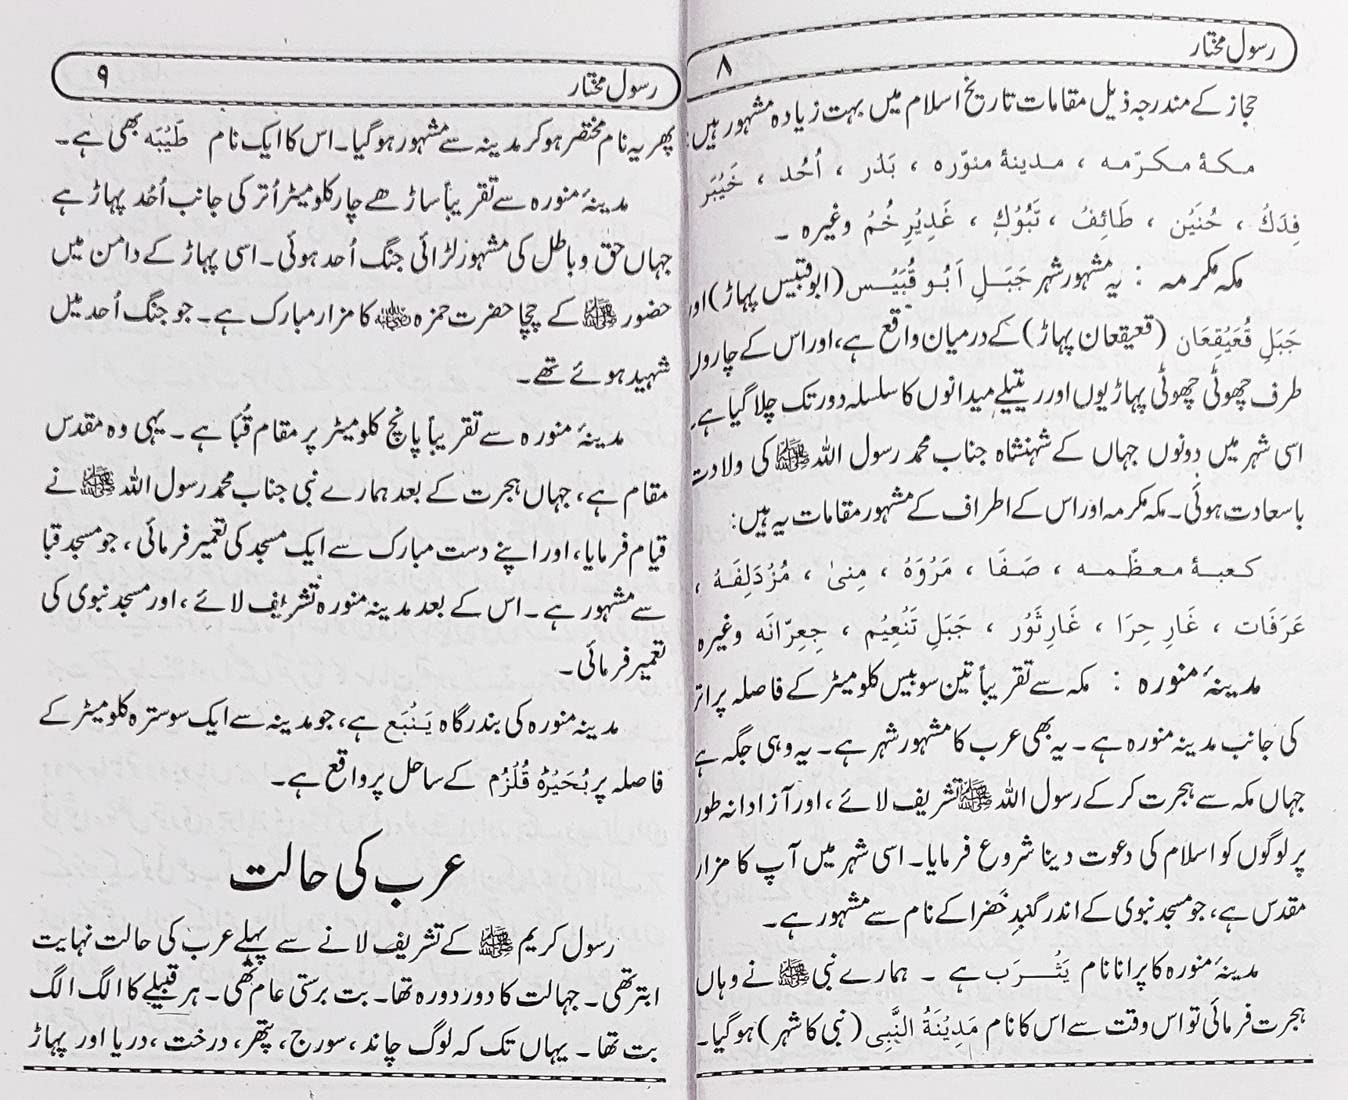 رسول مختار ۸
حجاز کے مندرجہ ذیل مقامات تاریخ اسلام میں بہت زیادہ مشہور ہیں:
مکۂ مکرّمہ ، مدینۂ منوّرہ ، بَدْر ، اُحُد ، خَیْبَر
فِدَکْ ، حُنَیْن ، طَائِفْ ، تَبُوْکْ ، غَدِیْرِ خُمْ وغیرہ ۔
مکہ مکرمہ : یہ مشہور شہر جَبَلِ اَبُو قُبَیْس (ابوقبیس پہاڑ) اور
جَبَلِ قُعَیْقِعَان (قعیقعان پہاڑ) کے درمیان واقع ہے، اور اس کے چاروں
طرف چھوٹی چھوٹی پہاڑیوں اور ریتیلے میدانوں کا سلسلہ دور تک چلا گیا ہے۔
اسی شہر میں دونوں جہاں کے شہنشاہ جناب محمد رسول اللہ ﷺ کی ولادت
باسعادت ہوئی۔ مکہ مکرمہ اور اس کے اطراف کے مشہور مقامات یہ ہیں:
کعبۂ معظّمہ ، صَفَا ، مَرْوَہْ ، مِنیٰ ، مُزْدَلِفَہْ ،
عَرَفَات ، غَارِ حِرَا ، غَارِ ثَوْر ، جَبَلِ تَنْعِیْم ، جِعِرّانَہ وغیرہ
مدینۂ منورہ : مکہ سے تقریباً تین سو بیس کلومیٹر کے فاصلہ پر اتر
کی جانب مدینہ منورہ ہے۔ یہ بھی عرب کا مشہور شہر ہے۔ یہ وہی جگہ ہے
جہاں مکہ سے ہجرت کر کے رسول اللہ ﷺ تشریف لائے، اور آزادانہ طور
پر لوگوں کو اسلام کی دعوت دینا شروع فرمایا۔ اسی شہر میں آپ کا مزار
مقدس ہے، جو مسجد نبوی کے اندر گنبدِ خَضرا کے نام سے مشہور ہے۔
مدینۂ منورہ کا پرانا نام یَثْرَب ہے ۔ ہمارے نبی ﷺ نے وہاں
ہجرت فرمائی تو اس وقت سے اس کا نام مَدِیْنَۃُ النَّبِی (نبی کا شہر) ہو گیا۔
رسول مختار ۹
پھر یہ نام مختصر ہو کر مدینہ سے مشہور ہو گیا۔ اس کا ایک نام طَیْبَہ بھی ہے۔
مدینۂ منورہ سے تقریباً ساڑھے چار کلومیٹر اُتر کی جانب اُحُد پہاڑ ہے
جہاں حق و باطل کی مشہور لڑائی جنگ اُحد ہوئی۔ اسی پہاڑ کے دامن میں
حضور ﷺ کے چچا حضرت حمزہ رضی اللہ عنہ کا مزار مبارک ہے۔ جو جنگ اُحد میں
شہید ہوئے تھے۔
مدینۂ منورہ سے تقریباً پانچ کلومیٹر پر مقام قُبا ہے۔ یہی وہ مقدس
مقام ہے، جہاں ہجرت کے بعد ہمارے نبی جناب محمد رسول اللہ ﷺ نے
قیام فرمایا، اور اپنے دست مبارک سے ایک مسجد کی تعمیر فرمائی، جو مسجد قبا
سے مشہور ہے۔ اس کے بعد مدینہ منورہ تشریف لائے، اور مسجد نبوی کی
تعمیر فرمائی۔
مدینہ منورہ کی بندرگاہ یَنْبَع ہے، جو مدینہ سے ایک سو سترہ کلومیٹر کے
فاصلہ پر بُحَیْرَۂ قُلْزُم کے ساحل پر واقع ہے۔
عرب کی حالت
رسول کریم ﷺ کے تشریف لانے سے پہلے عرب کی حالت نہایت
ابتر تھی۔ جہالت کا دور دورہ تھا۔ بت پرستی عام تھی۔ ہر قبیلے کا الگ الگ
بت تھا۔ یہاں تک کہ لوگ چاند، سورج، پتھر، درخت، دریا اور پہاڑ